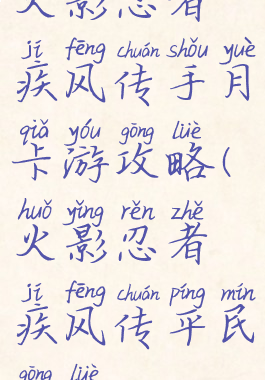 火影忍者
jí fēng chuán shǒu yuè
疾风传手月
qiǎ yóu gōng lüè
卡游攻略(
huǒ yǐng rěn zhě
火影忍者
jí fēng chuán píng mín
疾风传平民
gōng lüè